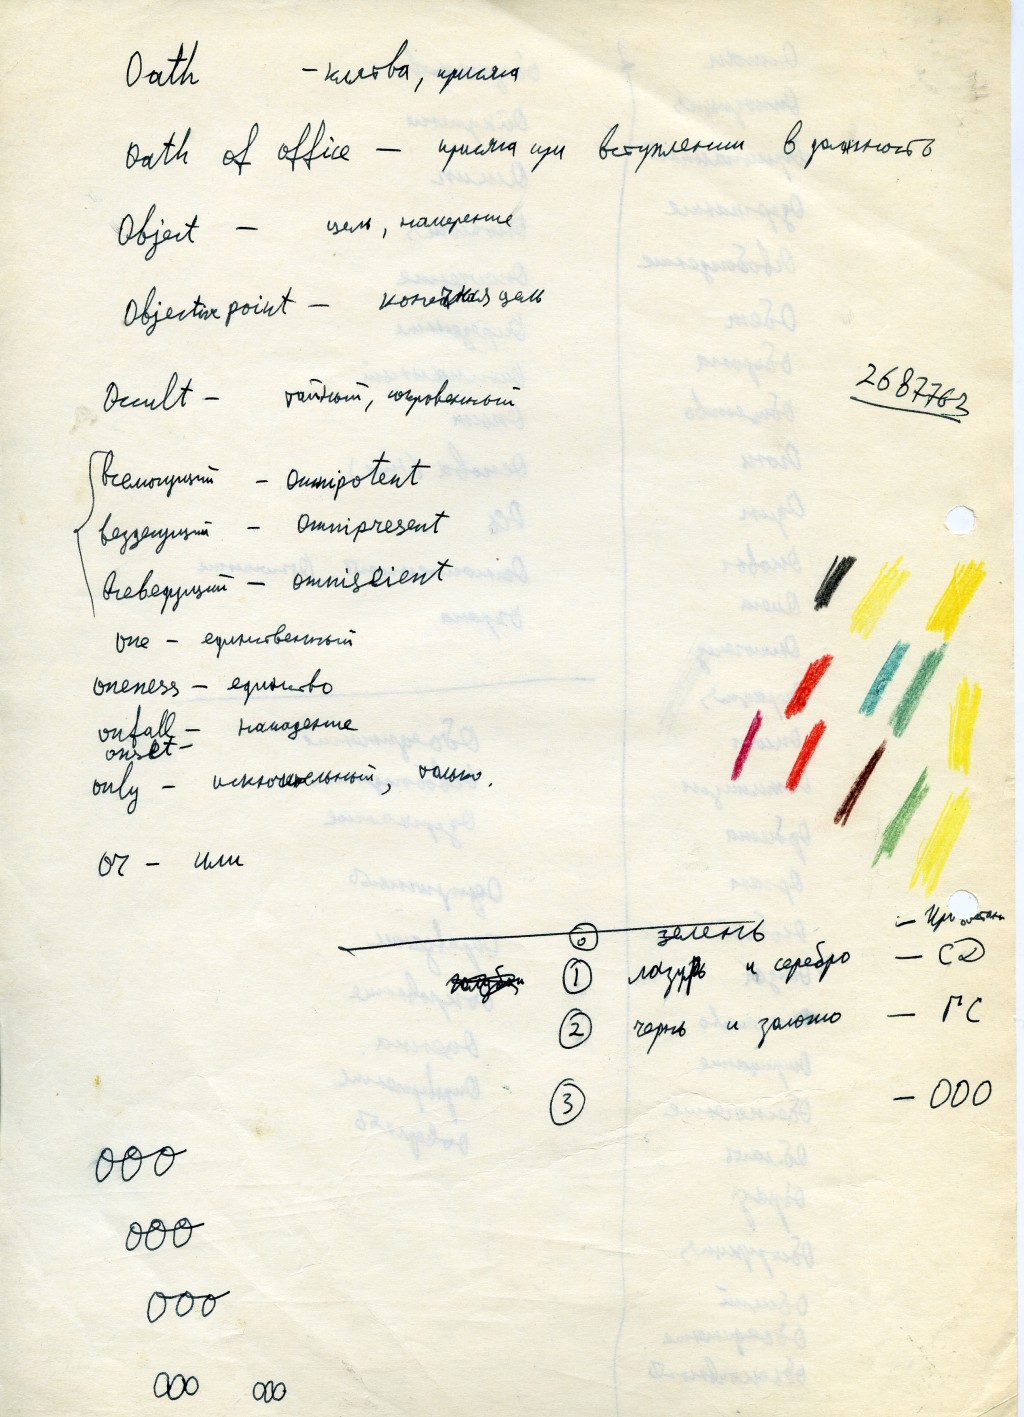 Oath - клятва, присяга
Oath of office - присяга при вступлении в должность
Object - цель, намерение
Objective point - конечная цель
Occult - тайный, сокровенный
2687763
всемогущий - Omnipotent
вездесущий - Omnipresent
всеведущий - omniscient
one - единственный
oneness - единство
onfall - нападение
onset -
only - исключительный, только.
or - или
0 зелень -
1 лазурь и серебро - СД
2 чернь и золото - ГС
3 - ООО
ООО
ООО
ООО
ООО ООО